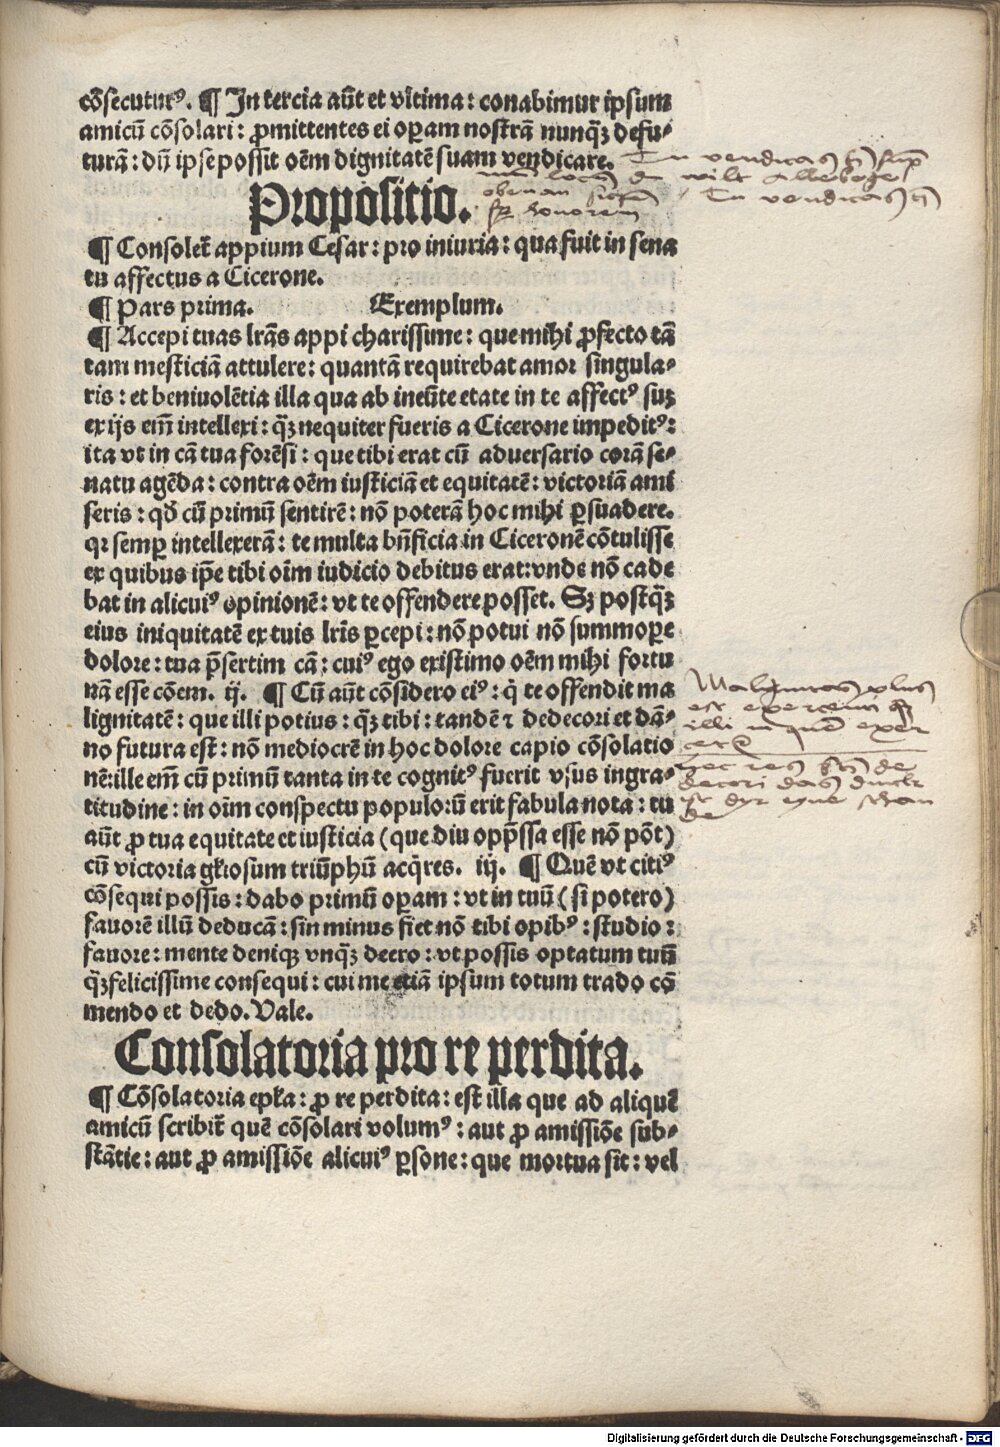 cõsecuturꝰ. ¶ In tercia aūt et vltima: conabimur ipsum
amicū cõsolari: ꝓmittentes ei oꝑam nostrā nunqꝫ defu⸗
turã: dū ipse possit oẽm dignitatẽ suam vendicare.
Propositio.
¶ Consolet̃ appium Cesar: pro iniuria: qua fuit in sena
tu affectus a Cicerone.
¶ Pars prima. Exemplum.
¶ Accepi tuas lr̃as appi charissime: que mihi ꝓfecto tã
tam mesticiã attulere: quantã requirebat amor singula⸗
ris: et beniuolẽtia illa qua ab ineũte etate in te affectꝰ suꝫ
ex ijs em̃ intellexi: qꝫ nequiter fueris a Cicerone impeditꝰ:
ita vt in cã tua forẽsi: que tibi erat cũ aduersario corã se⸗
natu agẽda: contra oẽm iusticiã et equitatẽ: victoriã ami
seris: qđ cũ primũ sentirẽ: nõ poterã hoc mihi ꝑsuadere.
qꝛ semꝑ intellexerã: te multa bñficia in Ciceronẽ cõtulisse
ex quibus ip̃e tibi oĩm iudicio debitus erat: vnde nõ cade
bat in alicuiꝰ opinionẽ: vt te offendere posset. Sꝫ postqꝫ
eius iniquitatẽ ex tuis lr̃is ꝑcepi: nõ potui nõ summoꝑe
dolore: tua p̃sertim cã: cuiꝰ ego existimo oẽm mihi fortu
nã esse cõem. ij. ¶ Cũ aūt cõsidero eiꝰ: q̇ te offendit ma
lignitatẽ: que illi potius: qꝫ tibi: tandẽ ⁊ dedecori et dã⸗
no futura est: nõ mediocrẽ in hoc dolore capio cõsolatio
nẽ: ille em̃ cũ primũ tanta in te cognitꝰ fuerit vsus ingra⸗
titudine: in oĩm conspectu populorũ erit fabula nota: tu
aūt ꝓ tua equitate et iusticia (que diu opp̃ssa esse nõ põt)
cũ victoria gl̃iosum triũphũ acq̇res. iij. ¶ Quẽ vt citiꝰ
cõsequi possis: dabo primũ oꝑam: vt in tuũ (si potero)
fauorẽ illũ deducã: sin minus fiet nõ tibi opibꝰ: studio:
fauore: mente deniqꝫ vnqꝫ deero: vt possis optatum tuũ
qꝫfelicissime consequi: cui me etiã ipsum totum trado cõ
mendo et dedo. Vale.
Consolatoria pro re perdita.
¶ Cõsolatoria epl̃a: ꝓ re perdita: est illa que ad aliquẽ
amicũ scribit̃ quẽ cõsolari volumꝰ: aut ꝓ amissiõe sub⸗
stãtie: aut ꝓ amissiõe alicuiꝰ ꝑsone: que mortua sit: vel
Digitalisierung gefördert durch die Deutsche Forschungsgemeinschaft - DFG